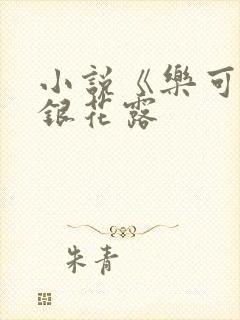 小説《樂可
銀花露
朱青